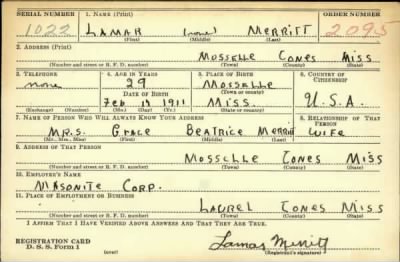 SERIAL NUMBER 1. NAME (Print) ORDER NUMBER
1022 LAMAR (none) MERRITT 2095
(First) (Middle) (Last)
2. ADDRESS (Print)
MOSSELLE JONES MISS
(Number and street or R. F. D. number) (Town) (County) (State)
3. TELEPHONE 4. AGE IN YEARS 5. PLACE OF BIRTH 6. COUNTRY OF CITIZENSHIP
none 29 MOSSELLE
DATE OF BIRTH (Town or county)
Feb 19 1911 MISS. U.S.A.
(Exchange) (Number) (Mo.) (Day) (Yr.) (State or country)
7. NAME OF PERSON WHO WILL ALWAYS KNOW YOUR ADDRESS 8. RELATIONSHIP OF THAT PERSON
MRS. GRACE BEATRICE MERRITT WIFE
(Mr., Mrs., Miss) (First) (Middle) (Last)
9. ADDRESS OF THAT PERSON
MOSSELLE JONES MISS
(Number and street or R. F. D. number) (Town) (County) (State)
10. EMPLOYER'S NAME
MASONITE CORP.
11. PLACE OF EMPLOYMENT OR BUSINESS
LAUREL JONES MISS
(Number and street or R. F. D. number) (Town) (County) (State)
I AFFIRM THAT I HAVE VERIFIED ABOVE ANSWERS AND THAT THEY ARE TRUE.
REGISTRATION CARD
D. S. S. Form 1 (over) Lamar Merritt
(Registrant's signature)